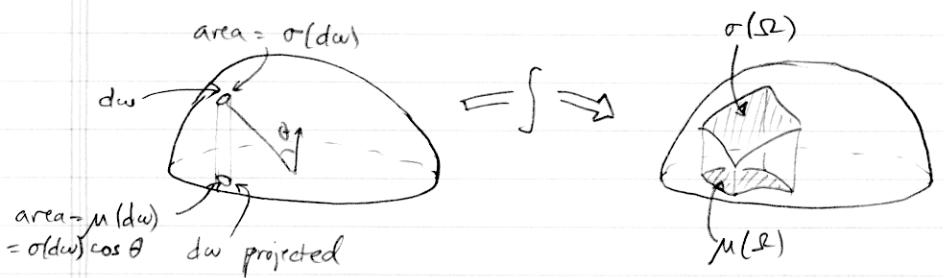 area = σ(dω)
dω
θ
area = μ(dω)
= σ(dω) cos θ
dω projected
∫
σ(Ω)
μ(Ω)